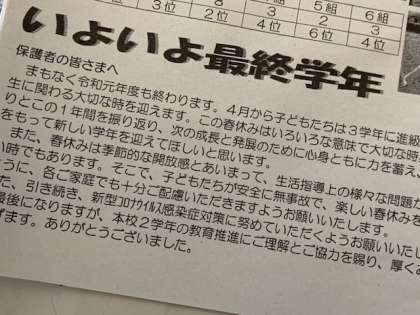 5組 6組
3位 2位 3位 4位 2 3
4位 6位 4
いよいよ最終学年
保護者の皆さまへ
まもなく令和元年度も終わります。4月から子どもたちは3学年に進級
生に関わる大切な時を迎えます。この春休みはいろいろな意味で大切な時
りとこの1年間を振り返り、次の成長と発展のために心身ともに力を蓄え、
をもって新しい学年を迎えてほしいと思います。
また、春休みは季節的な開放感とあいまって、生活指導上の様々な問題が
い時でもあります。そこで、子どもたちが安全に無事故で、楽しい春休みを
うに、各ご家庭でも十分ご配慮いただきますようお願いいたします。
た、引き続き、新型コロナウイルス感染症対策に努めていただくようお願いいたし
最後になりますが、本校2学年の教育推進にご理解とご協力を賜り、厚く
げます。ありがとうございました。